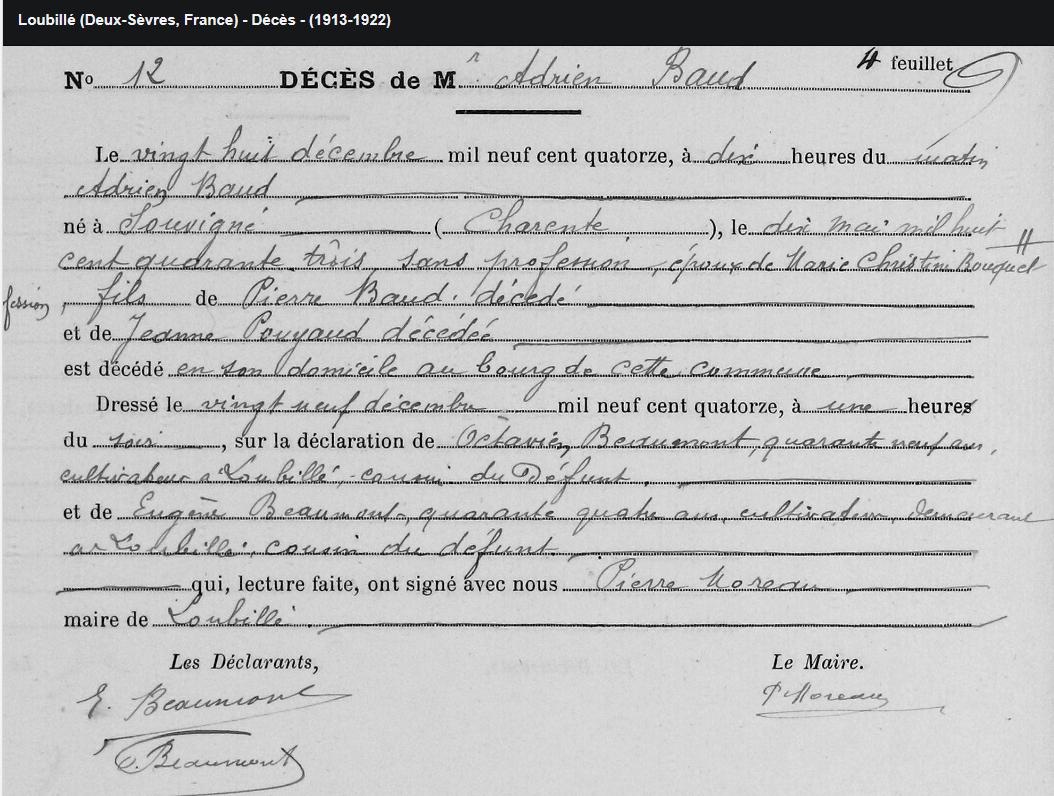 Loubillé (Deux-Sèvres, France) - Décès - (1913-1922)
4 feuillet
No 12 DÉCÈS de M. r Adrien Baud
Le vingt huit décembre mil neuf cent quatorze, à dix heures du matin
Adrien Baud
né à Souvigné (Charente), le dix mai mil huit
cent quarante trois, sans profession, époux de Marie Christine Bouquet //
fession, fils de Pierre Baud, décédé
et de Jeanne Pougaud décédée
est décédé en son domicile au bourg de cette commune
Dressé le vingt neuf décembre mil neuf cent quatorze, à une heures
du soir, sur la déclaration de Octavien Beaumont, quarante neuf ans,
cultivateur à Loubillé, cousin du Défunt.
et de Eugène Beaumont, quarante quatre ans, cultivateur, demeurant
à Loubillé, cousin du défunt.
qui, lecture faite, ont signé avec nous Pierre Moreau
maire de Loubillé.
Les Déclarants, Le Maire.
E. Beaumont P. Moreau
O. Beaumont